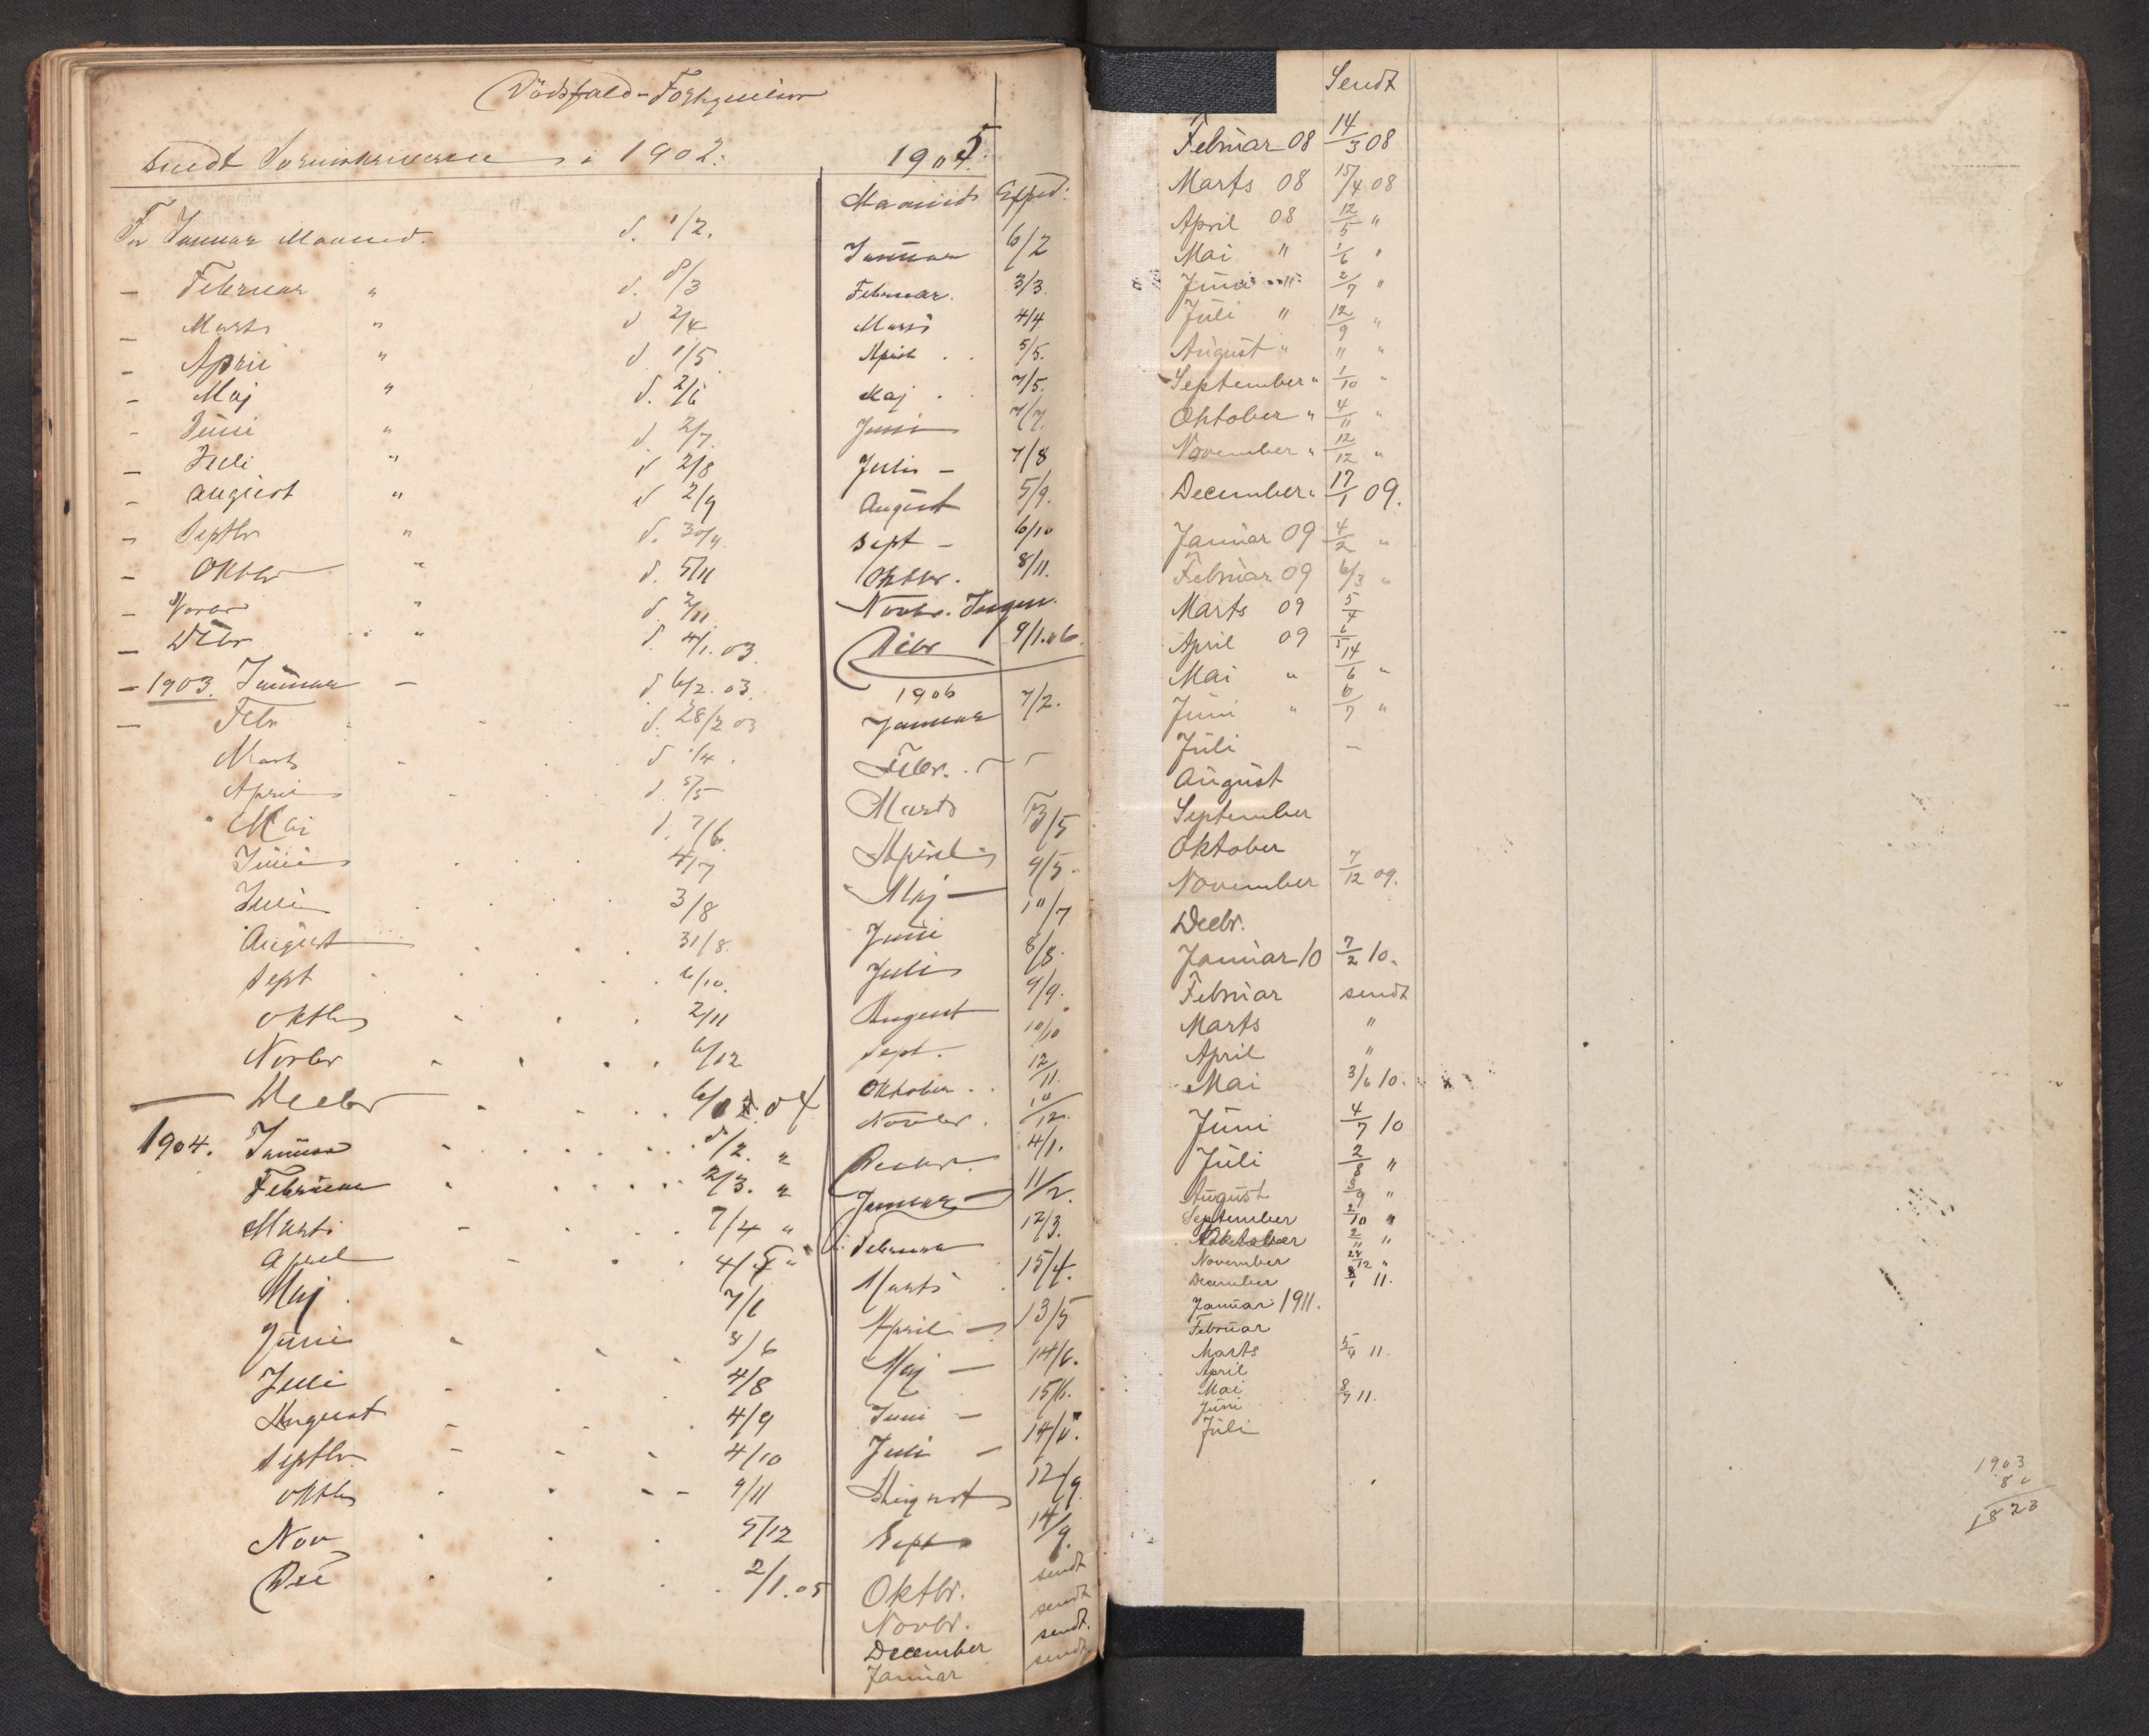 Dödsfald-Fortegnelser
sendt Sorenskriveren i 1902.
For Januar Maaned. d. 1/2.
- Februar " d. 8/3
- Marts " d 2/4
- April " d 1/5
- Maj " d. 2/6
- Juni " d. 2/7.
- Juli " d 2/8
- August " d 2/9
- Septbr " d. 30/9.
- Oktbr " d. 5/11
- Novbr " d. 2/11
- Decbr " d. 4/1. 03.
- 1903. Januar - d 6/2. 03.
- Febr d. 28/2 03
Marts d 1/4.
April d. 5/5
Mai d. 7/6
Juni 4/7
Juli 3/8
August 31/8.
Sept 6/10.
Oktbr 2/11
Novbr 6/12
Decbr 6/1 04
1904. Januar 5/2. "
Februar 2/3. "
Marts 7/4 "
April 4/5 "
Maj 7/6
Juni 3/6
Juli 4/8
August 4/9
Septbr 4/10
Oktb 9/11
Nov 5/12
Dec 2/1. 05
1905.
Maaned Exped:
Januar 6/2
Februar. 3/3.
Marts 4/4
April . . 5/5.
Maj . . 7/5.
Juni 7/7.
Juli - 7/8
August 5/9.
Sept - 6/10
Oktbr. 8/11.
Novbr. Ingen.
Decbr 9/1.06.
1906
Januar 7/2.
Febr. . -
Marts 3/5
April 9/5.
Maj - 10/7
Juni 8/8.
Juli 9/9.
August 10/10
Sept. 12/11.
Oktober . . 10/12.
Novbr. 4/1.
Decbr. 11/2.
Januar 12/3.
Februar 15/4.
Marts 13/5
April - 14/6.
Maj - 15/6.
Juni - 14/8.
Juli - 12/9
August 14/9.
Sept
Oktbr. sendt
Novbr. sendt
December sendt.
Januar sendt.
Sendt
Februar 08 14/3 08
Marts 08 15/4 08
April 08 12/5 "
Mai " 1/6 "
Juni " 2/7 "
Juli " 12/9 "
August " " "
September " 1/10 "
Oktober " 4/11 "
November " 12/12 "
December " 17/1 09.
Januar 09 4/2 "
Februar 09 6/3 "
Marts 09 5/4
April 09 6/5
Mai " 14/6 "
Juni " 6/7 "
Juli -
August
September
Oktober
November 7/12 09.
Decbr.
Januar 10 7/2 10.
Februar sendt
Marts "
April "
Mai 3/6 10.
Juni 4/7 10
Juli 2/8 "
August 3/9 "
September 2/10 "
Oktober 2/11 "
November 28/12 "
December 8/1 11.
Januar 1911.
Februar
Marts 5/4 11.
April
Mai 8/7 11.
Juni
Juli
1903
80
1823